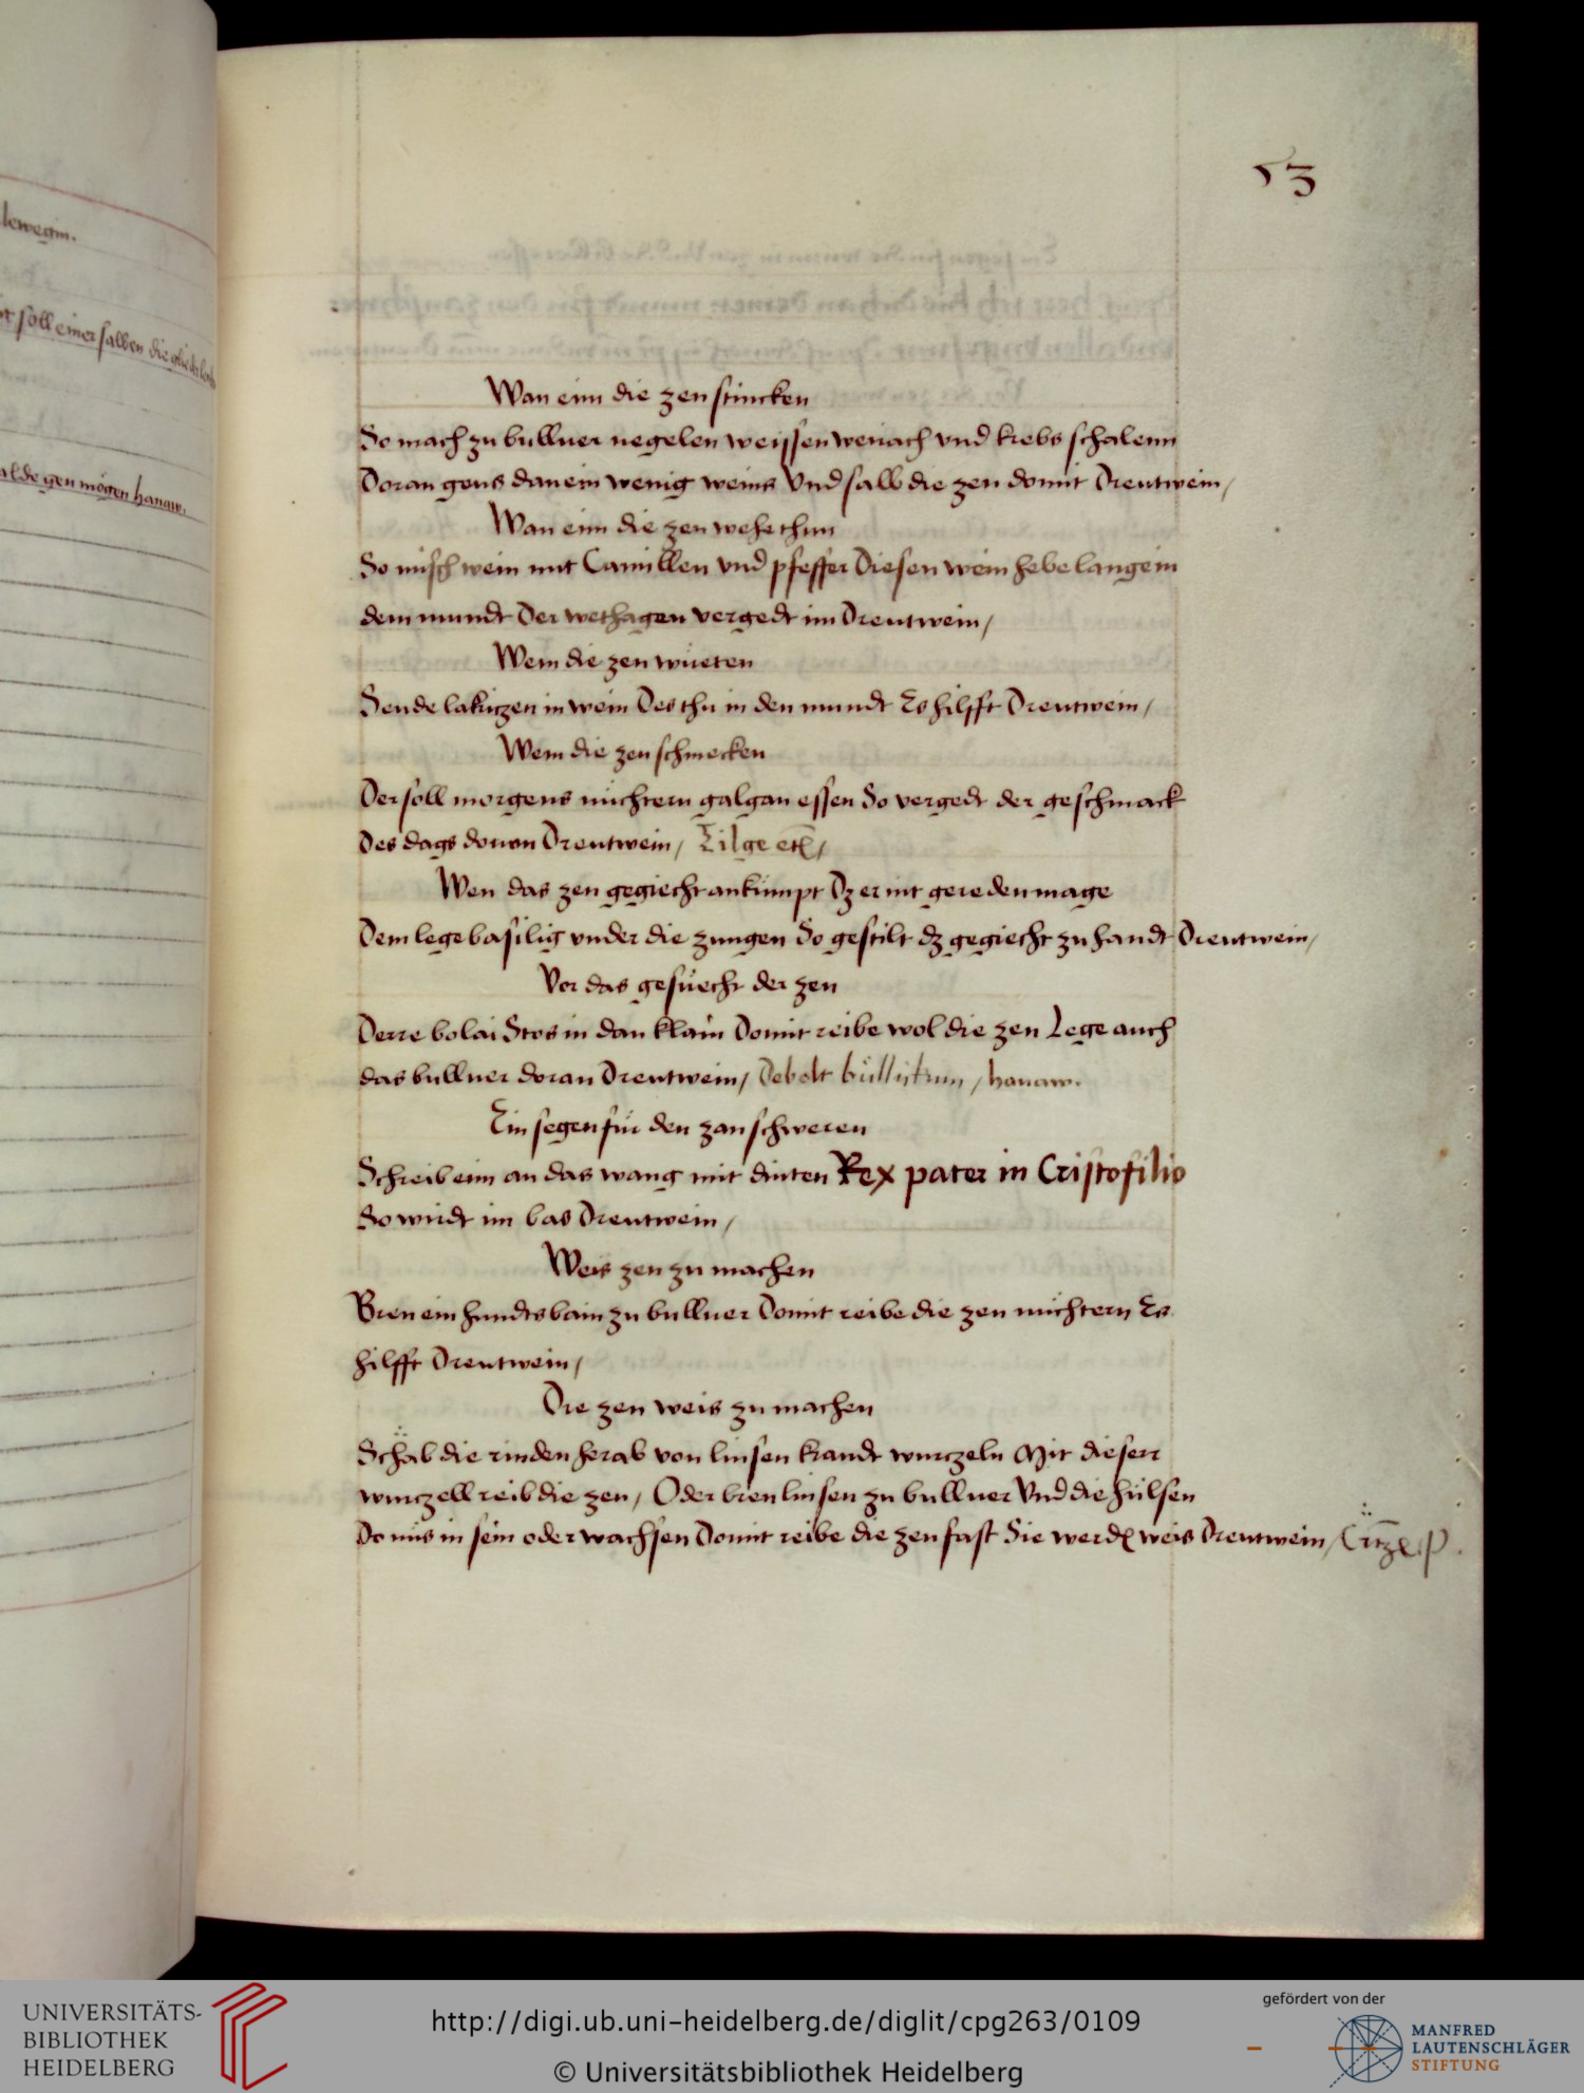 53
Wan eim die zen stincken
So mach zu bulluer negelen weyssen weirach vnd krebs schalenn
Doran geus dan ein wenig weins Vnd salb die zen domit Drentwein /
Wan eim die zen wehe thun
So misch wein mit Camillen vnd pfeffer Diesen wein hebe lange in
dem mundt Der wethagen vergedt im Drentwein /
Wem die zen wüeten
Seude lakirzen in wein Des thu in den mundt Es hilfft Drentwein /
Wem die zen schmecken
Der soll morgens nüchtern galgan essen So vergedt der geschmack
Des dags douon Drentwein /
Wen das zen gegiecht ankümpt Dz er nit gereden mage
Dem lege basilig vnder die zungen So gestilt dz gegiecht zu handt Drentwein /
Vor das gesüecht der zen
Derre bolai Stos in dan klain Domit reibe wol die zen Lege auch
das bulluer doran Drentwein / hanaw.
Ein segen für den zan schweren
Schreib eim an das wang mit dinten Rex pater in Cristofilio
So wirdt im bas Drentwein /
Weis zen zu machen
Bren ein hundts bain zu bulluer Domit reibe die zen nüchtern Es
hilfft Drentwein /
Die zen weis zu machen
Schab die rinden herab von linsen kraudt wurczeln Mit dieserr
wurczell reib die zen / Oder bren linsen zu bulluer Vnd die hülsen
Do mis in sein oder wachsen Domit reibe die zen fast Sie werdn weis Drentwein /
lewegin.
soll einer salben die
alde gen mögen hanaw.
UNIVERSITÄTS-
BIBLIOTHEK
HEIDELBERG
http://digi.ub.uni-heidelberg.de/diglit/cpg263/0109
© Universitätsbibliothek Heidelberg
gefördert von der
MANFRED
LAUTENSCHLÄGER
STIFTUNG